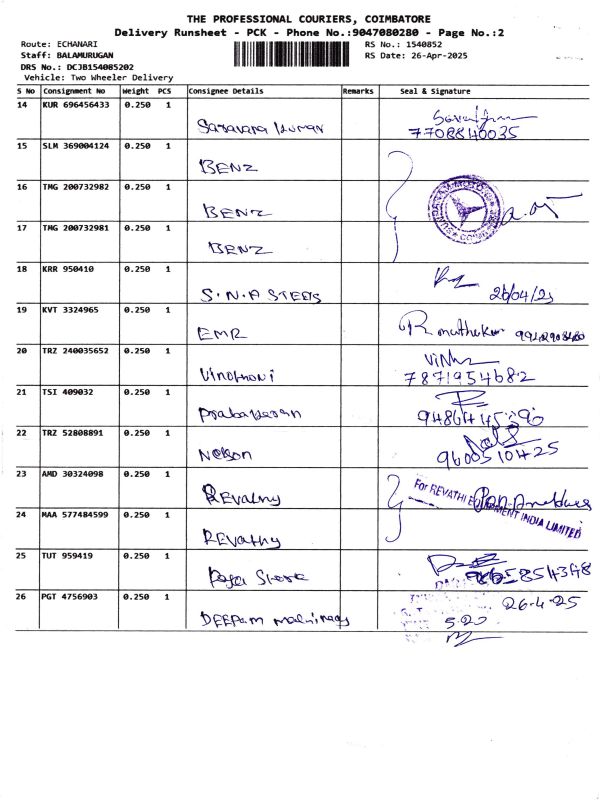 THE PROFESSIONAL COURIERS, COIMBATORE
Delivery Runsheet - PCK - Phone No.:9047080280 - Page No.:2
Route: ECHANARI
RS No.: 1540852
Staff: BALAMURUGAN
RS Date: 26-Apr-2025
DRS No.: DCJB154085202
Vehicle: Two Wheeler Delivery
S No Consignment No Weight PCS Consignee Details Remarks Seal & Signature
14 KUR 696456433 0.250 1
Saravana kumar
7708840035
15 SLM 369004124 0.250 1
BENZ
16 TMG 200732982 0.250 1
BENZ
17 TMG 200732981 0.250 1
BENZ
18 KRR 950410 0.250 1
S.N.A STEELS 26/04/25
19 KVT 3324965 0.250 1
EMR
20 TRZ 240035652 0.250 1
Vinothini
7871954682
21 TSI 409032 0.250 1
Prabakaran
22 TRZ 52808891 0.250 1
Nelson 9600510425
23 AMD 30324098 0.250 1
REvathy
For REVATHI EQUIPMENT INDIA LIMITED
24 MAA 577484599 0.250 1
REvathy
25 TUT 959419 0.250 1
26 PGT 4756903 0.250 1
26.4.25
DEEPam
5.20